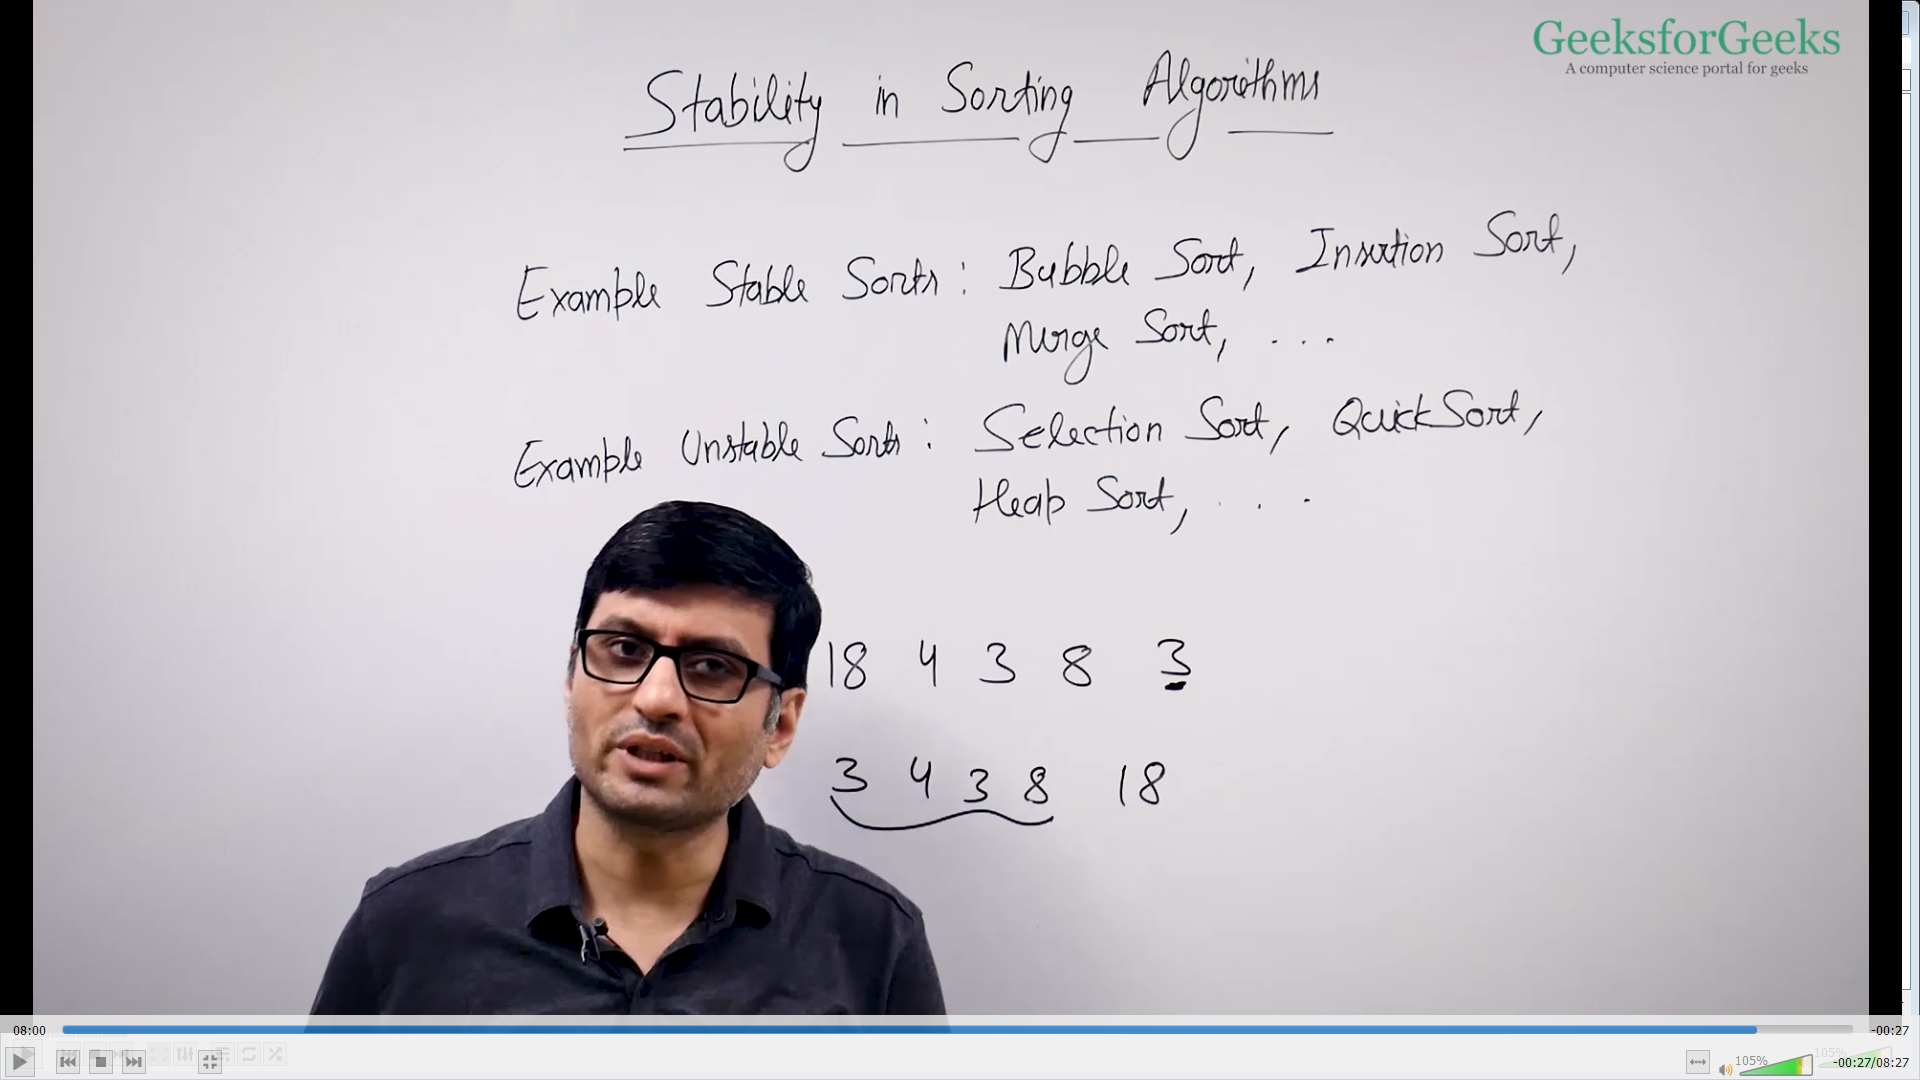 GeeksforGeeks
A computer science portal for geeks
Stability in Sorting Algorithms
Example Stable Sorts : Bubble Sort, Insertion Sort,
Merge Sort, ...
Example Unstable Sorts : Selection Sort, QuickSort,
Heap Sort, ...
18 4 3 8 3
3 4 3 8 18
08:00 -00:27
105% 105% -00:27/08:27